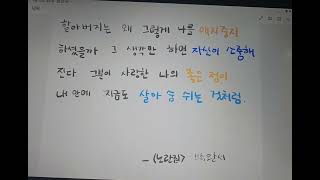 할아버지는 왜 그렇게 나를 애지중지
하셨을까 그 생각만 하면 자신이 소중해
진다 그분이 사랑한 나의 좋은 점이
내 안에 지금도 살아 숨 쉬는 것처럼.
- <노란집> 박완서